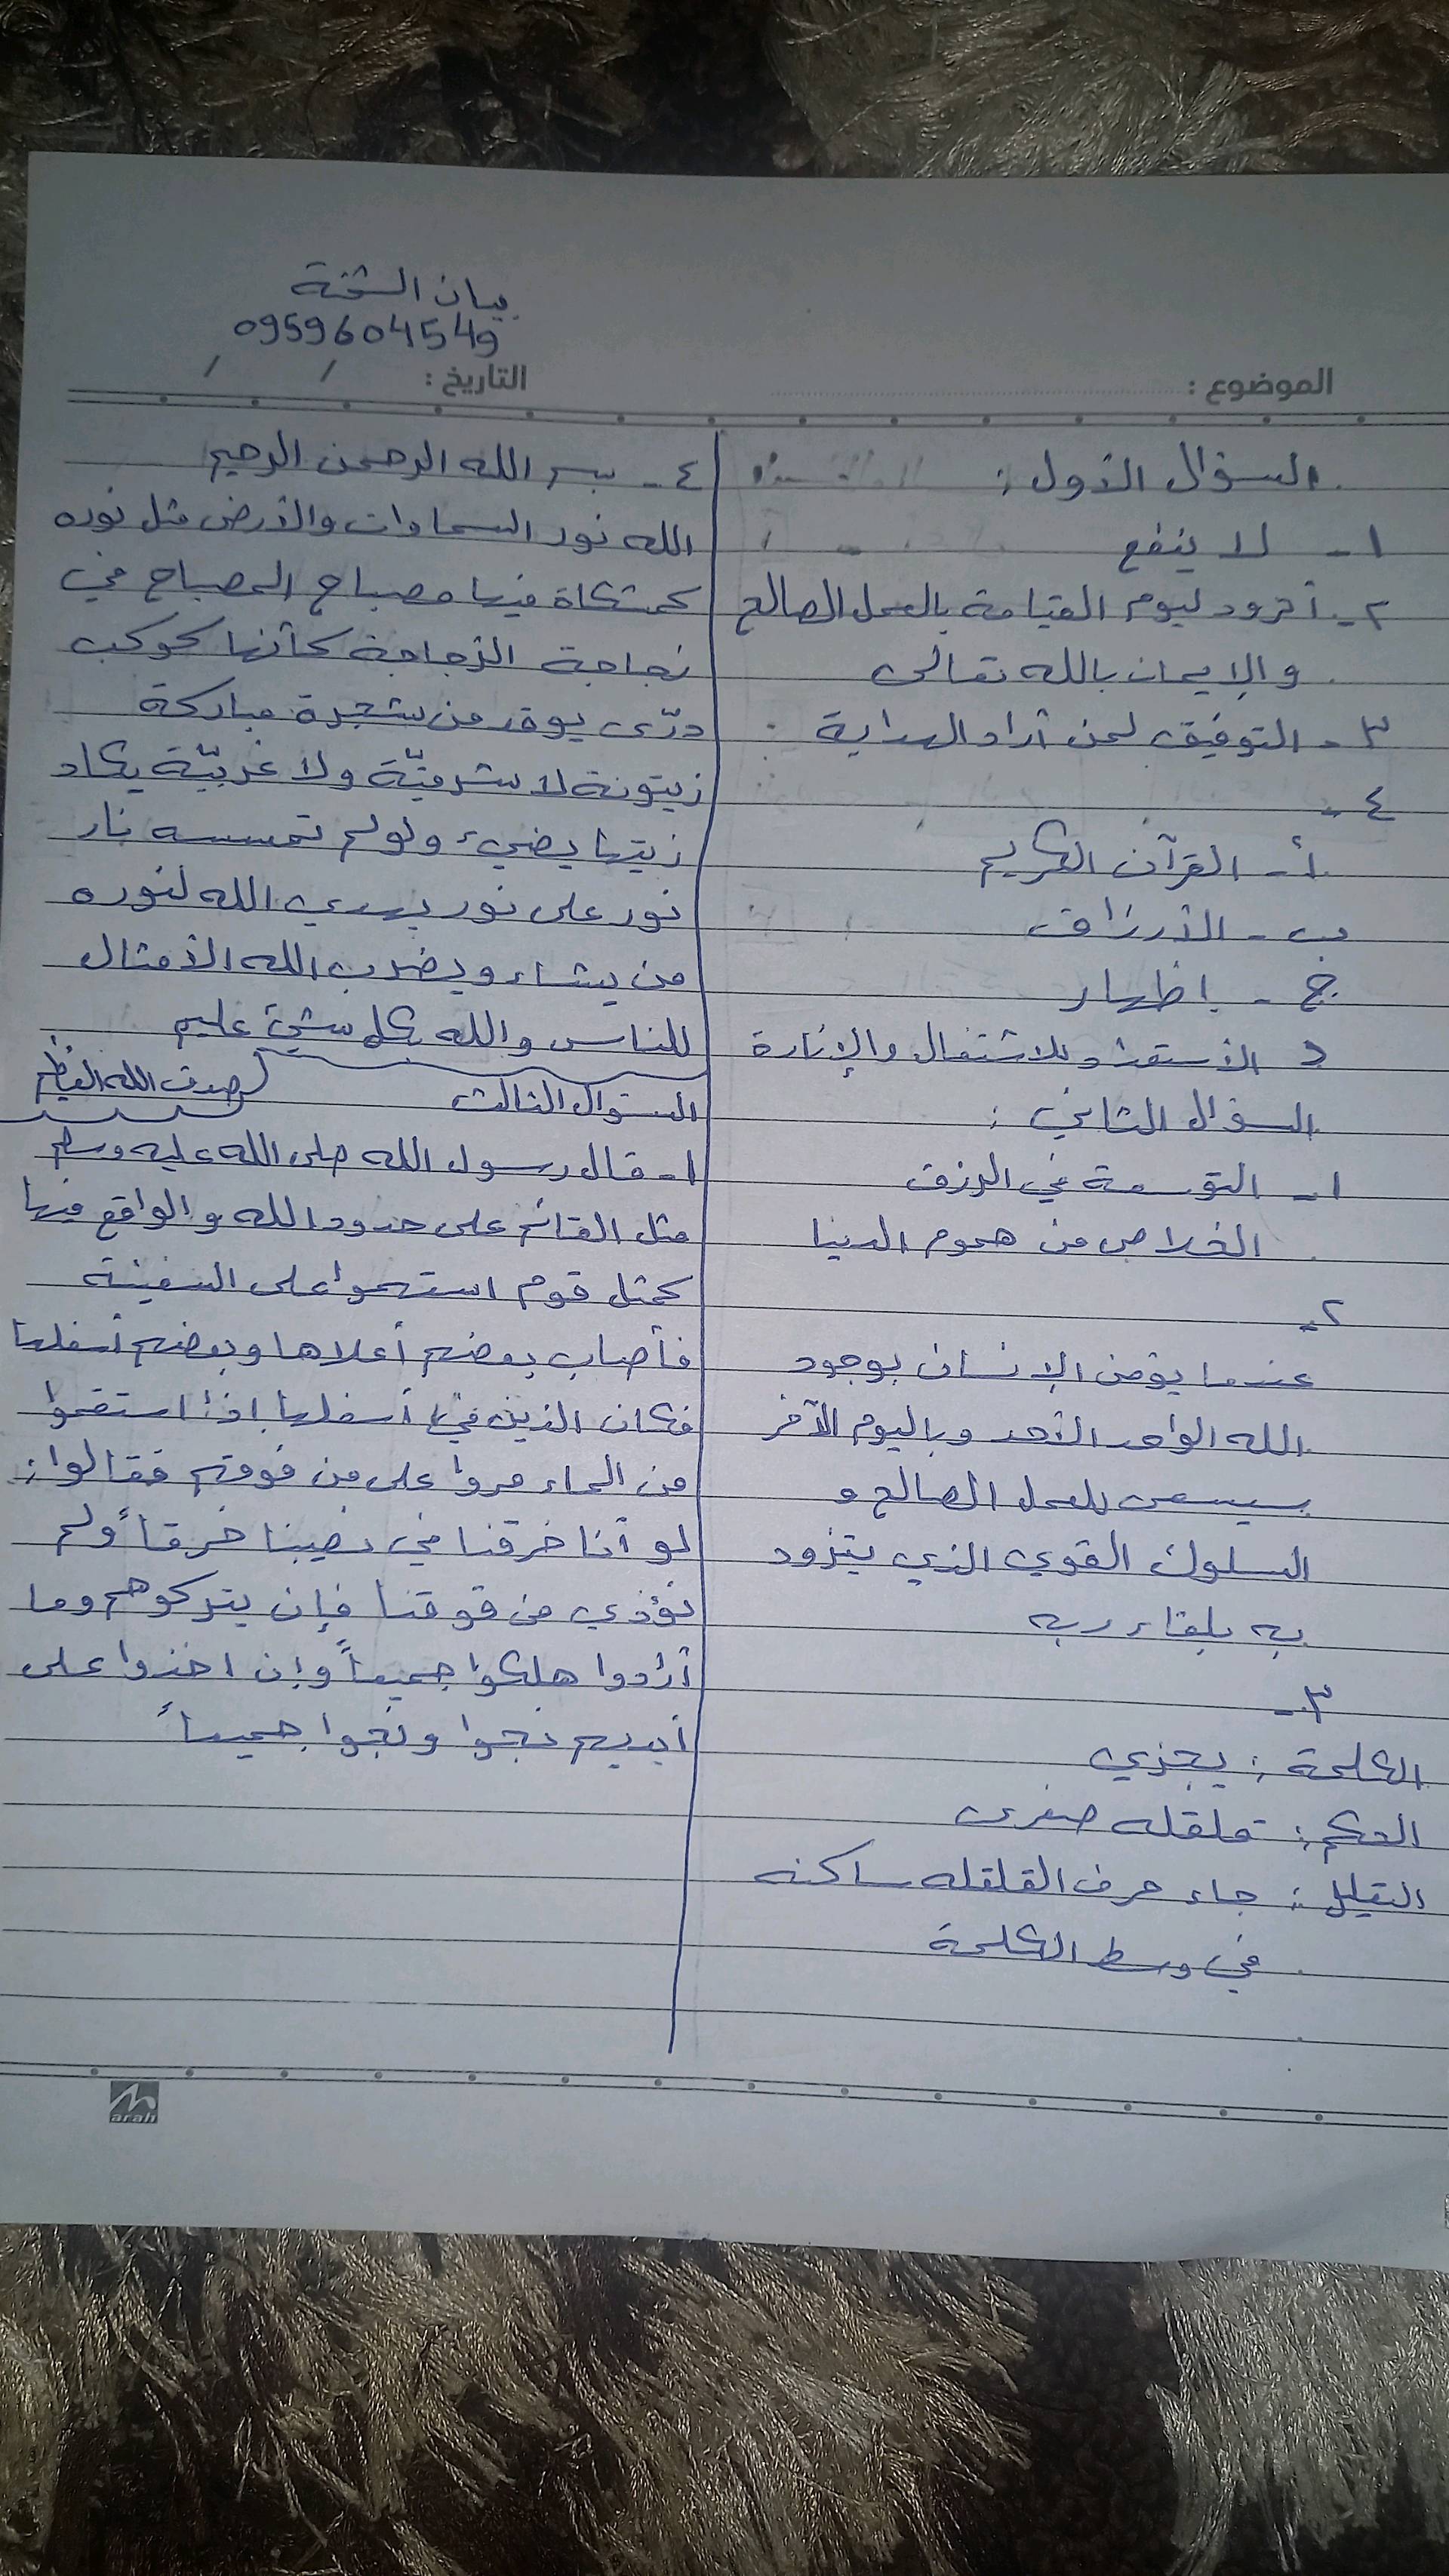 بيان الشحنة
0959604549
الموضوع :
التاريخ : / /
السؤال الأول :
١- لا ينفع
٢- أتزود ليوم القيامة بالعمل الصالح
والإيمان بالله تعالى
٣- التوفيق لمن أراد الهداية
٤-
أ- القرآن الكريم
ب- الأرزاق
ج- إظهار
د للاشتعال والإنارة
السؤال الثاني :
١- التوسعة في الرزق
الخلاص من هموم الدنيا
٢-
عندما يؤمن الإنسان بوجود
الله الواحد الأحد وباليوم الآخر
سيسعى للعمل الصالح و
السلوك القوي الذي يتزود
به بلقاء ربه
٣-
الكلمة : يجزي
الحكم : قلقله صغرى
التعليل : جاء حرف القلقله ساكنه
في وسط الكلمة
٤- بسم الله الرحمن الرحيم
الله نور السماوات والأرض مثل نوره
كمشكاة فيها مصباح المصباح في
زجاجة الزجاجة كأنها كوكب
درّي يوقد من شجرة مباركة
زيتونة لا شرقيّة ولا غربيّة يكاد
زيتها يضيء ولو لم تمسسه نار
نور على نور يهدي الله لنوره
من يشاء ويضرب الله الأمثال
للناس والله بكل شيئ عليم
صدق الله العظيم
السؤال الثالث
١- قال رسول الله صلى الله عليه وسلم
مثل القائم على حدود الله والواقع فيها
كمثل قوم استهموا على السفينة
فأصاب بعضهم أعلاها وبعضهم أسفلها
فكان الذين في أسفلها إذا استقموا
من الماء مروا على من فوقهم فقالوا :
لو أنا خرقنا في نصيبنا خرقاً ولم
نؤذي من فوقنا فإن يتركوهم وما
أرادوا هلكوا جميعاً وإن اخذوا على
أيديهم نجوا ونجوا جميعاً
arah